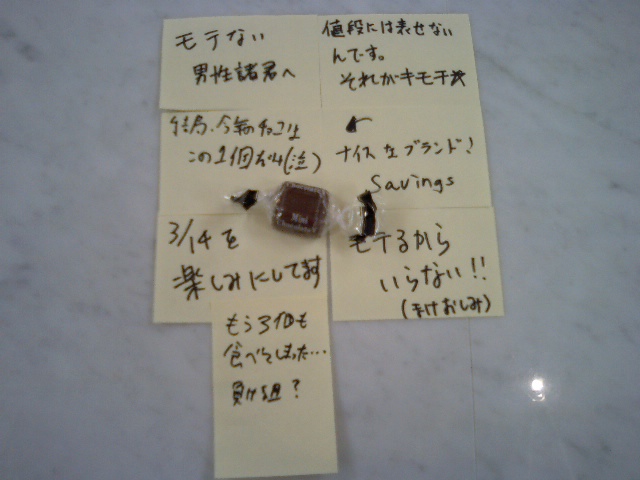 モテない
男性諸君へ
値段には表せない
んです。
それがキモチ☆
結局、今年のチョコは
この1個だけ(泣)
ナイスなブランド!
Savings
Mini
3/14を
楽しみにしてます
モテるから
いらない!!
(まけおしみ)
もう3個も
食べてしまった…
負け組?